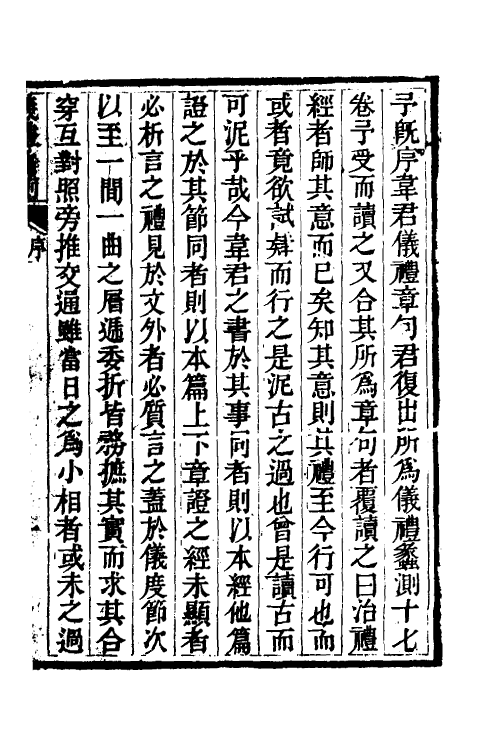 予旣序韋君儀禮章句君復出所爲儀禮蠡測十七
卷予受而讀之又合其所爲章句者覆讀之曰治禮
經者師其意而已矣知其意則其禮至今行可也而
或者竟欲試肄而行之是泥古之過也曾是讀古而
可泥乎哉今韋君之書於其事同者則以本經他篇
證之於其節同者則以本篇上下章證之經未顯者
必析言之禮見於文外者必質言之蓋於儀度節次
以至一間一曲之層遞委折皆務摭其實而求其合
穿互對照旁推交通雖當日之爲小相者或未之過
儀禮蠡測
序